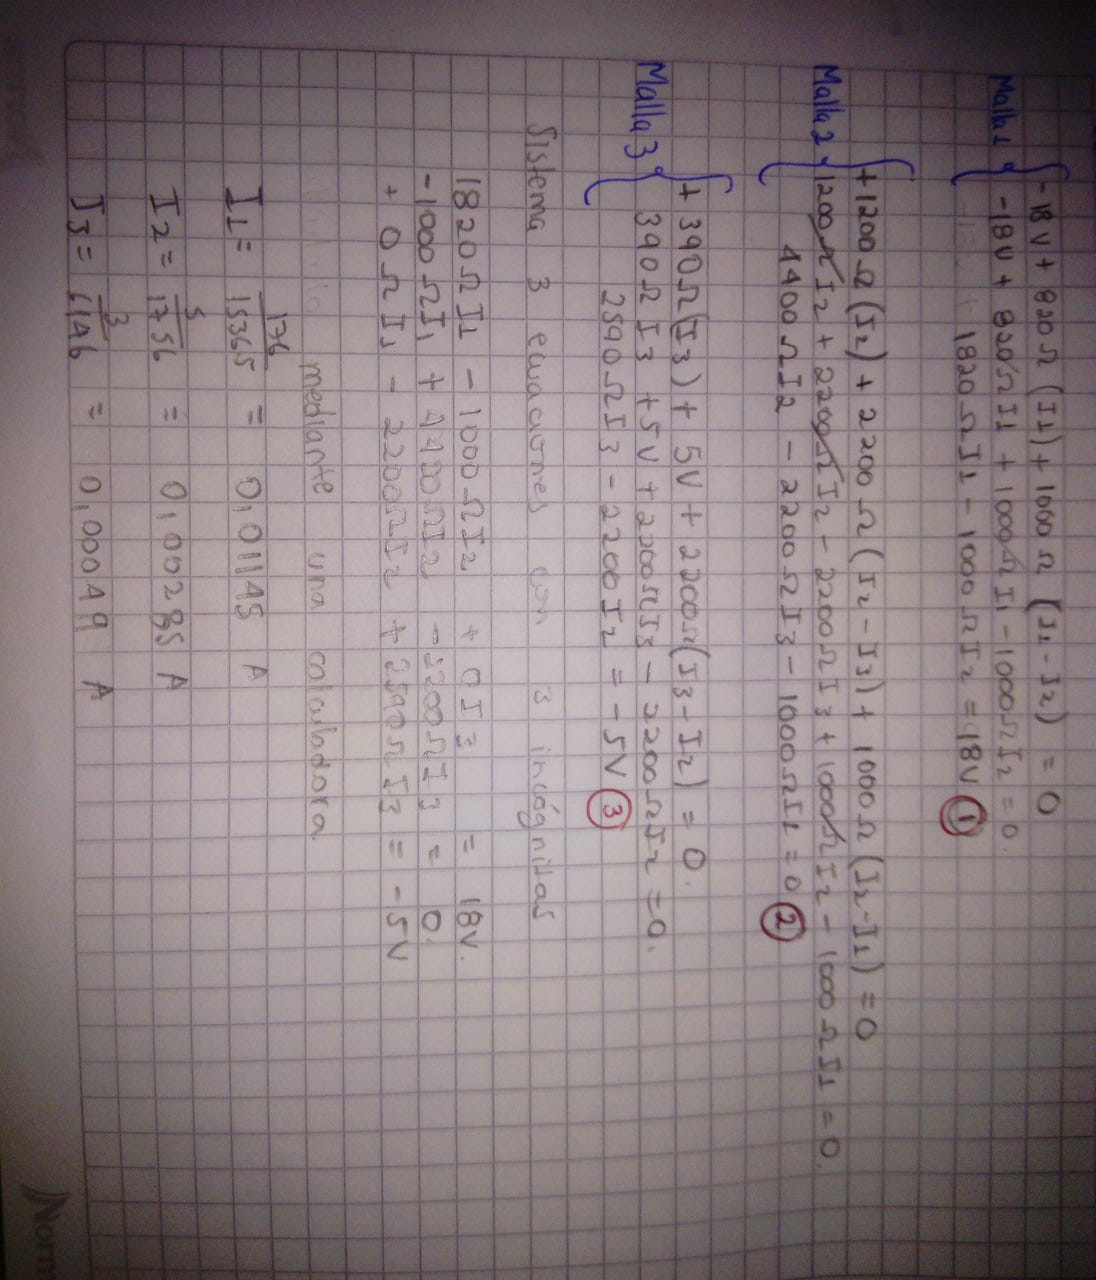 Malla 1
-18V + 820Ω (I1) + 1000Ω (I1-I2) = 0
-18V + 820ΩI1 + 1000ΩI1 - 1000ΩI2 = 0.
1820ΩI1 - 1000ΩI2 = 18V ①
Malla 2
+1200Ω(I2) + 2200Ω(I2-I3) + 1000Ω(I2-I1) = 0
1200ΩI2 + 2200ΩI2 - 2200ΩI3 + 1000ΩI2 - 1000ΩI1 = 0.
4400ΩI2 - 2200ΩI3 - 1000ΩI1 = 0 ②
Malla 3
+ 390Ω(I3) + 5V + 2200Ω(I3-I2) = 0.
390ΩI3 + 5V + 2200ΩI3 - 2200ΩI2 = 0.
2590ΩI3 - 2200I2 = -5V ③
Sistema 3 ecuaciones con 3 incógnitas
1820ΩI1 - 1000ΩI2 + 0I3 = 18V.
-1000ΩI1 + 4400ΩI2 - 2200ΩI3 = 0.
+ 0ΩI1 - 2200ΩI2 + 2590ΩI3 = -5V
mediante una calculadora.
I1 = 176/15365 = 0,01145 A
I2 = 5/1756 = 0,00285 A
I3 = 3/6146 = 0,00049 A
Norm